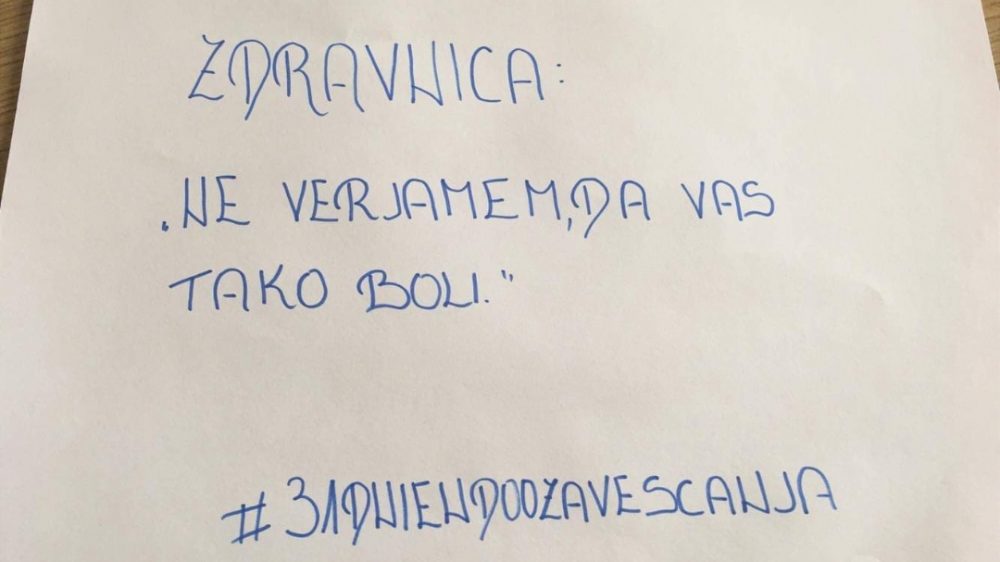 ZDRAVNICA:
"NE VERJAMEM, DA VAS
TAKO BOLI."
#31DNIENDOOZAVESCANJA